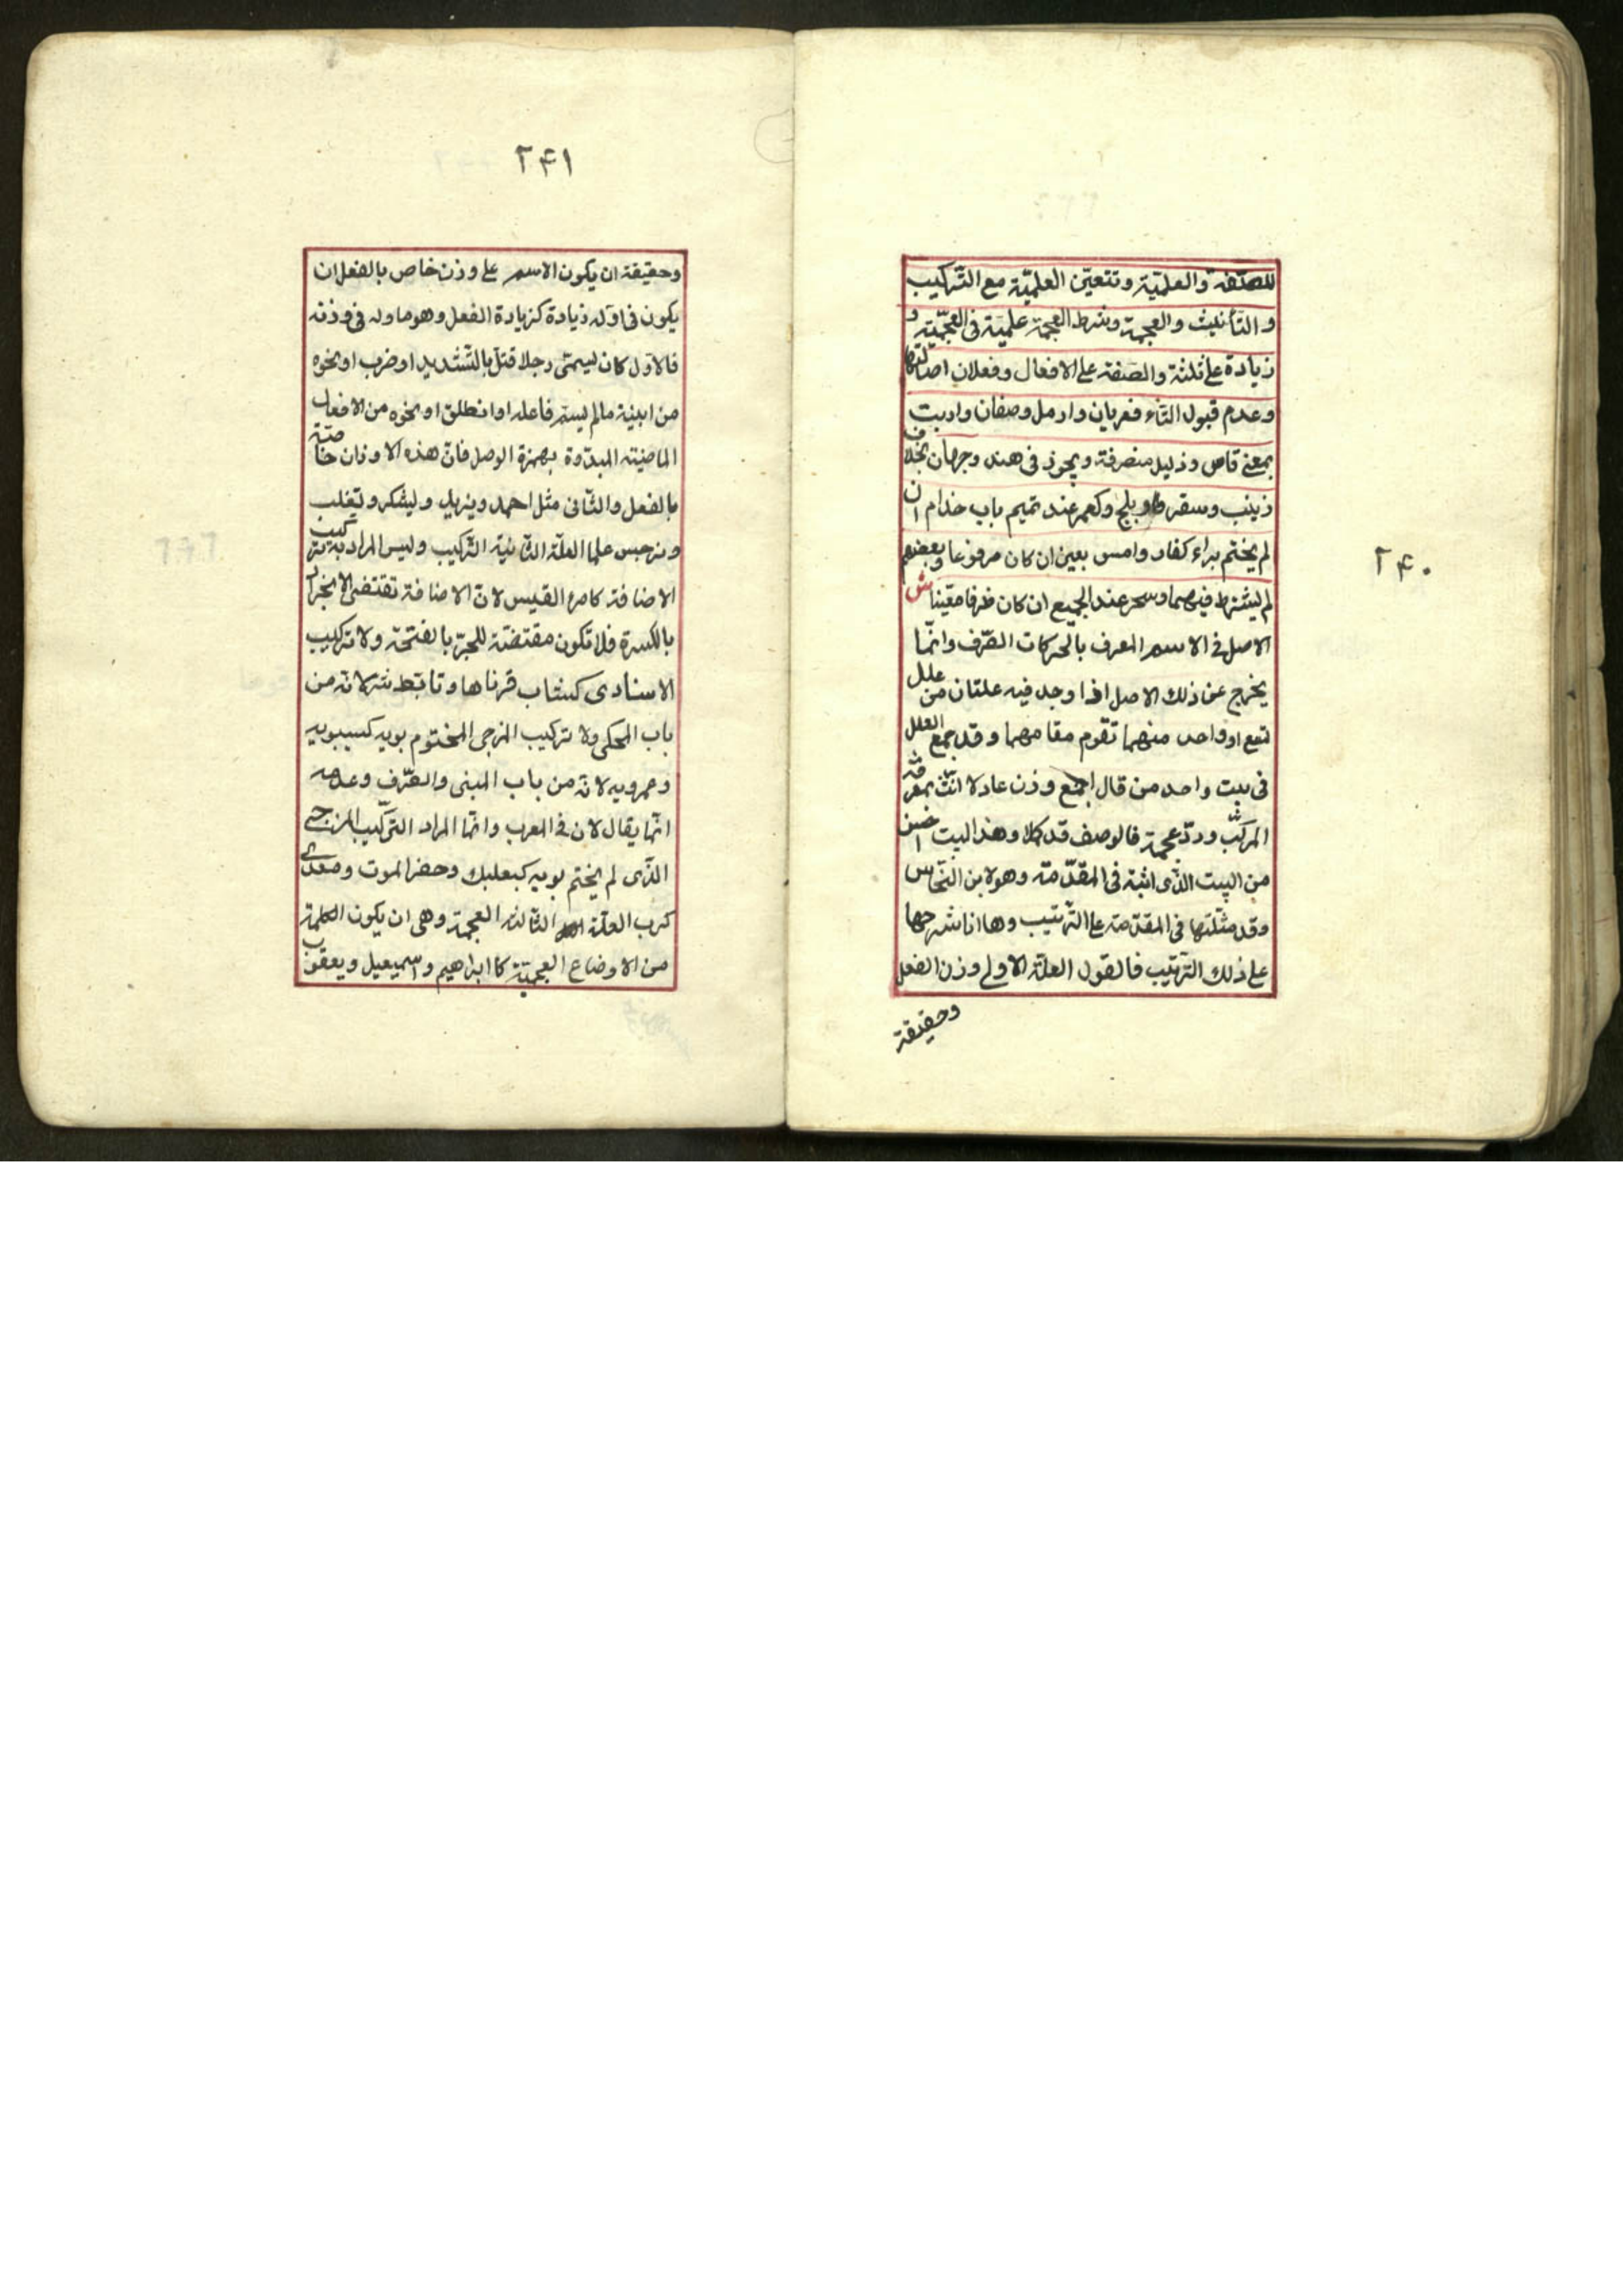 ۲۴۰
للصفة والعلمية وتتعين العلمية مع التركيب
والتأنيث والعجمة وشرط العجمة علمية فى العجمية و
زيادة على ثلثة والصفة على الافعال وفعلان اصالتها
وعدم قبول التاء فعريان وارمل وصفان وارنب
بمعنى قاص وذليل منصرفة ويجوز فى هند وجهان بخلاف
زينب وسقر وبلخ وكعمر عند تميم باب حذام ان
لم يختم براء كفار وامس بعين ان كان مرفوعا وبعضهم
لم يشترط فيهما وسحر عند الجميع ان كان ظرفا معينا ش
الاصل فى الاسم المعرف بالحركات الصّرف وانمّا
يخرج عن ذلك الاصل اذا وجد فيه علتان من علل
تسع او واحد منهما تقوم مقامهما وقد جمع العلل
فى بيت واحد من قال اجمع وزن عادلا انّث بمعرفة
المركّب وردّ عجمة فالوصف قد كملا وهذا البيت احسن
من البيت الذّى اثبته فى المقدّمة وهو لابن النحّاس
وقد مثّلتها فى المقدّمة على الترتيب وها انا شرحها
على ذلك الترتيب فالقول العلّة الاولى وزن الفعل
وحقيقة
۲۴۱
وحقيقة ان يكون الاسم على وزن خاص بالفعل ان
يكون فى اوله زيادة كزيادة الفعل وهو ماوله فى وزنه
فالاوّل كان يسمىّ رجلا قتلّ بالتّشديد او ضرب او نحوه
من ابنية مالم يسم فاعله او انطلق او نحوه من الافعال
الماضية المبدّوة بهمزة الوصل فانّ هذه الاوزان خاصّة
بالفعل والثّانى مثل احمد ويزيد ويشكر وتغلب
ونرجس علما العلّة الثّانية التّركيب وليس المراد به تركيب
الاضافة كامرء القيس لانّ الاضافة تقتضى الانجرار
بالكسرة فلا تكون مقتضتة للجرّ بالفتحة ولا تركيب
الاسنادى كشاب قرناها وتابّط شر لانّه من
باب المحكى ولا تركيب المزجى المختوم بويه كسيبويه
وعمرويه لانّه من باب المبنى والصّرف وعدمه
انّما يقال لان فى المعرب وانمّا المراد التركّيب المزجى
الذّى لم يختم بويه كبعلبك وحضرالموت ومعدى
كرب العلّة الثالثه العجمة وهى ان يكون الكلمة
من الاوضاع العجميّة كابراهيم واسميعيل ويعقوب